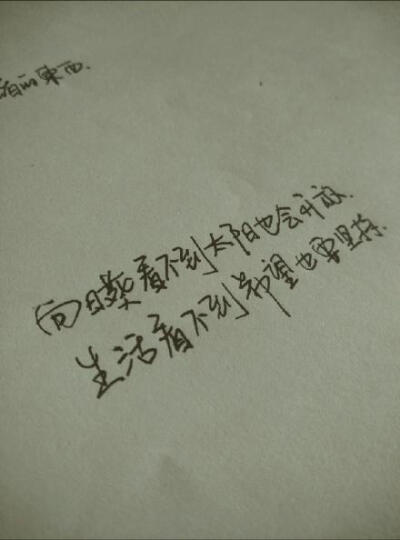 的东西.
向日葵看不到太阳也会开放.
生活看不到希望也要坚持.